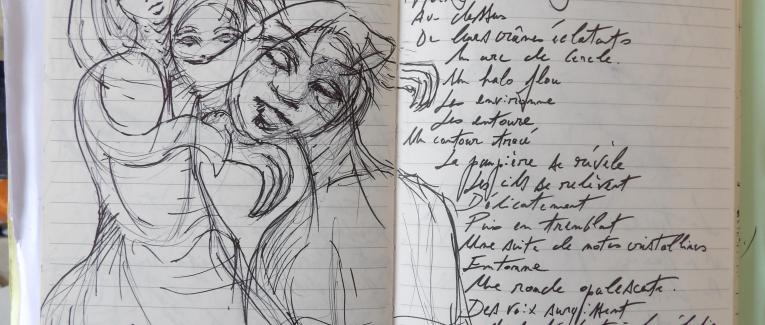 Au dessus
De leurs crânes éclatants
Un arc de cercle.
Un halo flou
Les environne
Les entoure
Un contour tracé
La paupière se révèle
Les cils se relèvent
Délicatement
Puis en tremblat
Une suite de notes cristallines
Entonne
Une ronde opalescate.
Des voix surgissent